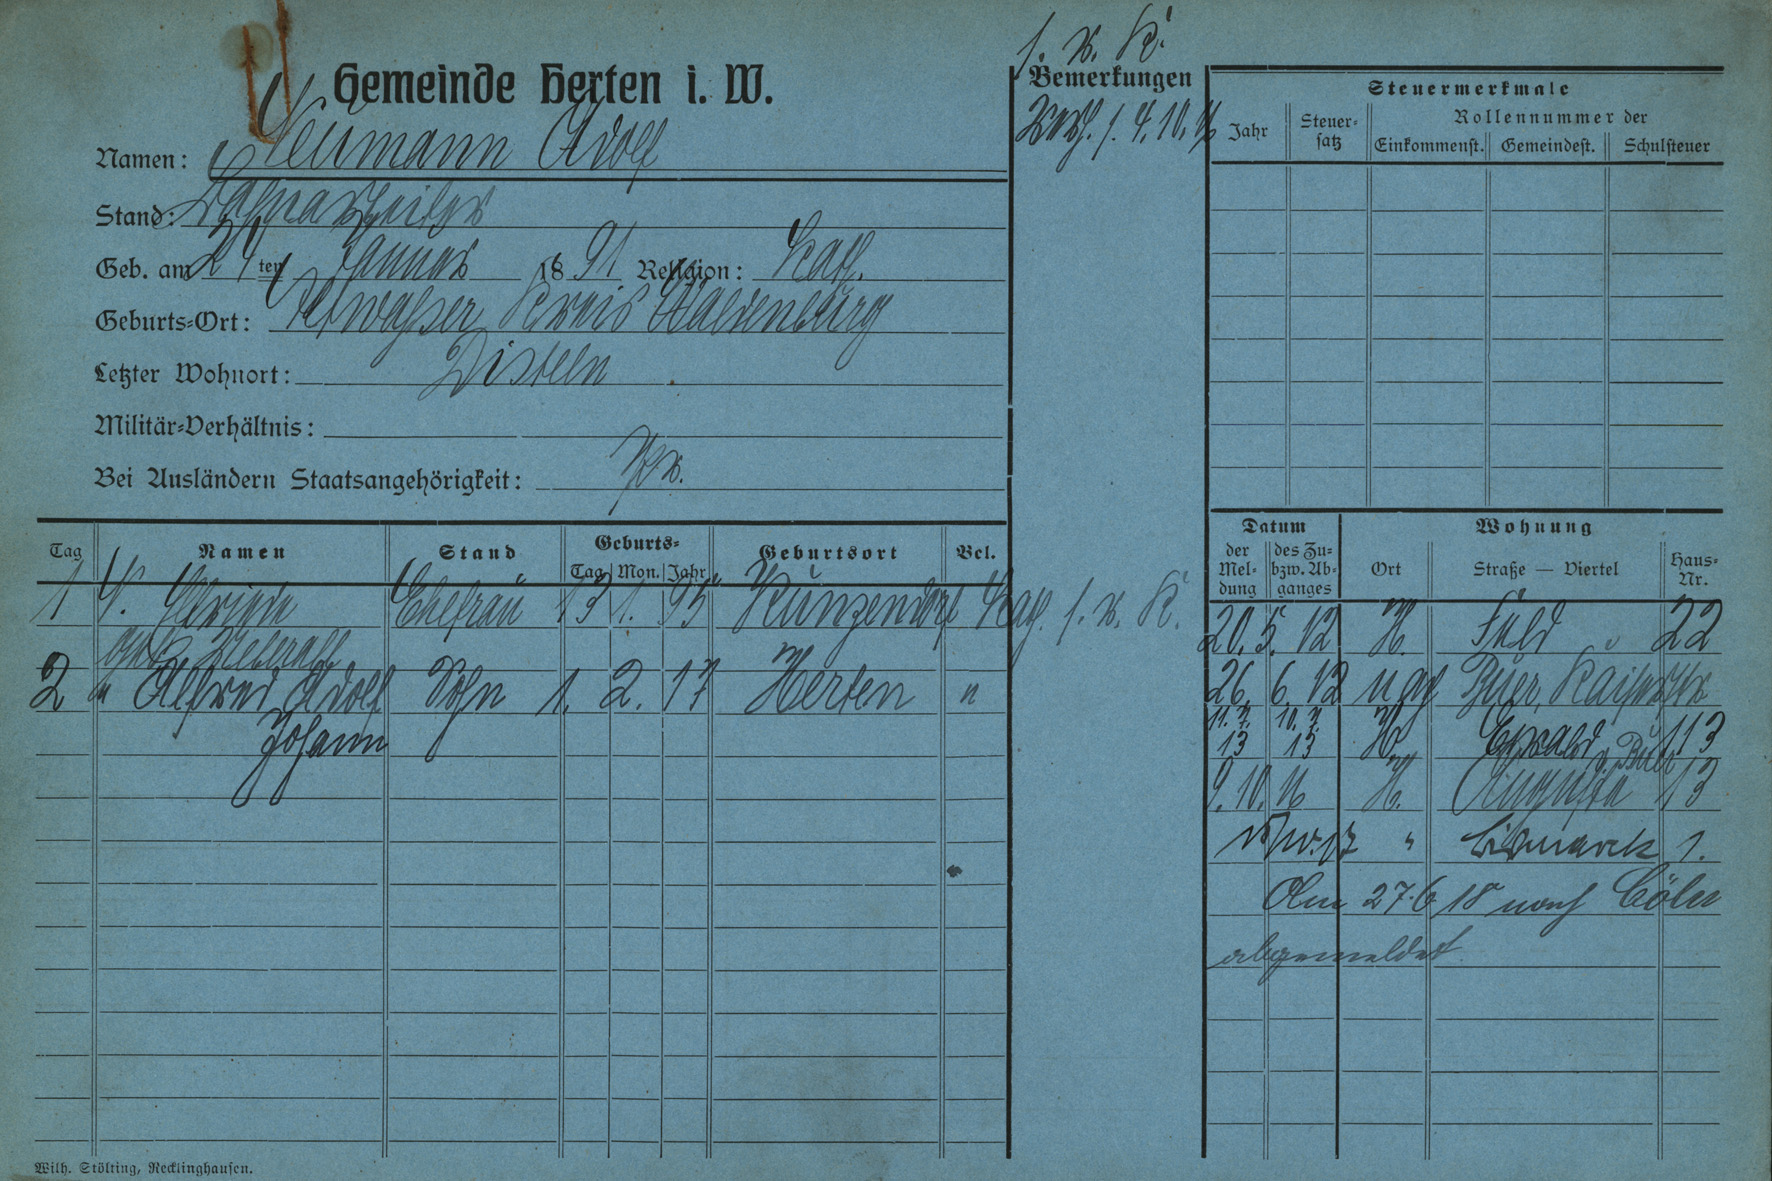 Gemeinde Herten i. W.
Namen: Neumann Adolf
Stand:
Geb. am 24 ten Januar 1891 Religion: Kath.
Geburts-Ort: Altwasser Kreis Waldenburg
Letzter Wohnort: Disteln
Militär-Verhältnis:
Bei Ausländern Staatsangehörigkeit: Pr.
Tag Namen Stand Geburts- Geburtsort Bek.
Tag Mon. Jahr
1 N. Ehefrau 13 1. 95 Kunzendorf Kath. s. w. K.
geb.
2 " Alfred Adolf Sohn 1. 2. 17 Herten "
Johann
Wilh. Stölting, Recklinghausen.
s. w. K.
Bemerkungen
Verh. s. 4. 10. 16
Steuermerkmale
Jahr Steuer- Rollennummer der
satz Einkommenst. Gemeindest. Schulsteuer
Datum Wohnung
der des Zu- Ort Straße — Viertel Haus-
Mel- bzw. Ab- Nr.
dung ganges
20. 5. 12 H. Feld " 22
26. 6. 12 n. Buer, Kaiserstr
11. 7. 10. 7. H. Ewald 113
13 13 v. Buer
9. 10. 16 H. Augusta 13
17 " Bismarck 1.
Am 27.6 18 nach Cöln
abgemeldet